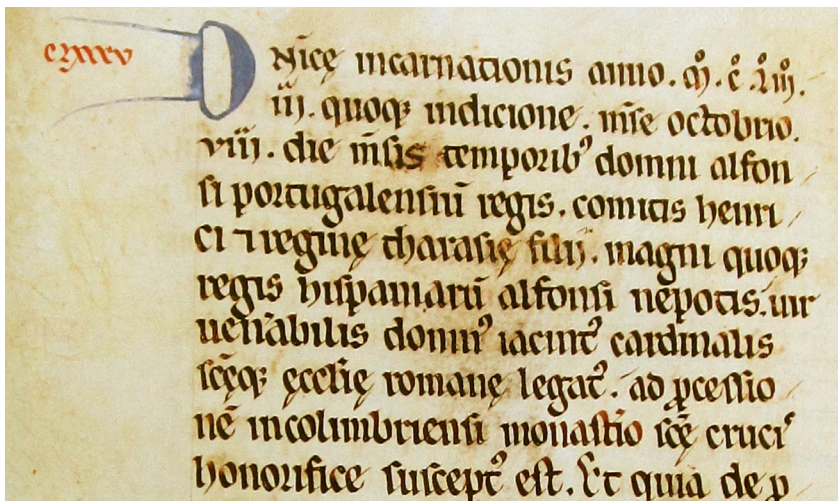 clxxxv
Dn̄icę incarnationis anno. m̊. c̊. l̊iiij.
iij. quoq; indicione. m̄se octobrio.
viij. die m̄sis temporib⁹ domni alfon
si portugalensiū regis. comitis henri
ci ⁊ reginę tharasię filij. magni quoq;
regis hispaniarū alfonsi nepotis. uir
uen̄abilis domn⁹ iacint⁹ cardinalis
sc̄ęq; ęccl̄ię romanę legat⁹. ad ꝓcessio
nē incolimbriensi monast̄io sc̄ę cruci⁹
honorifice suscept⁹ est. Et quia de p